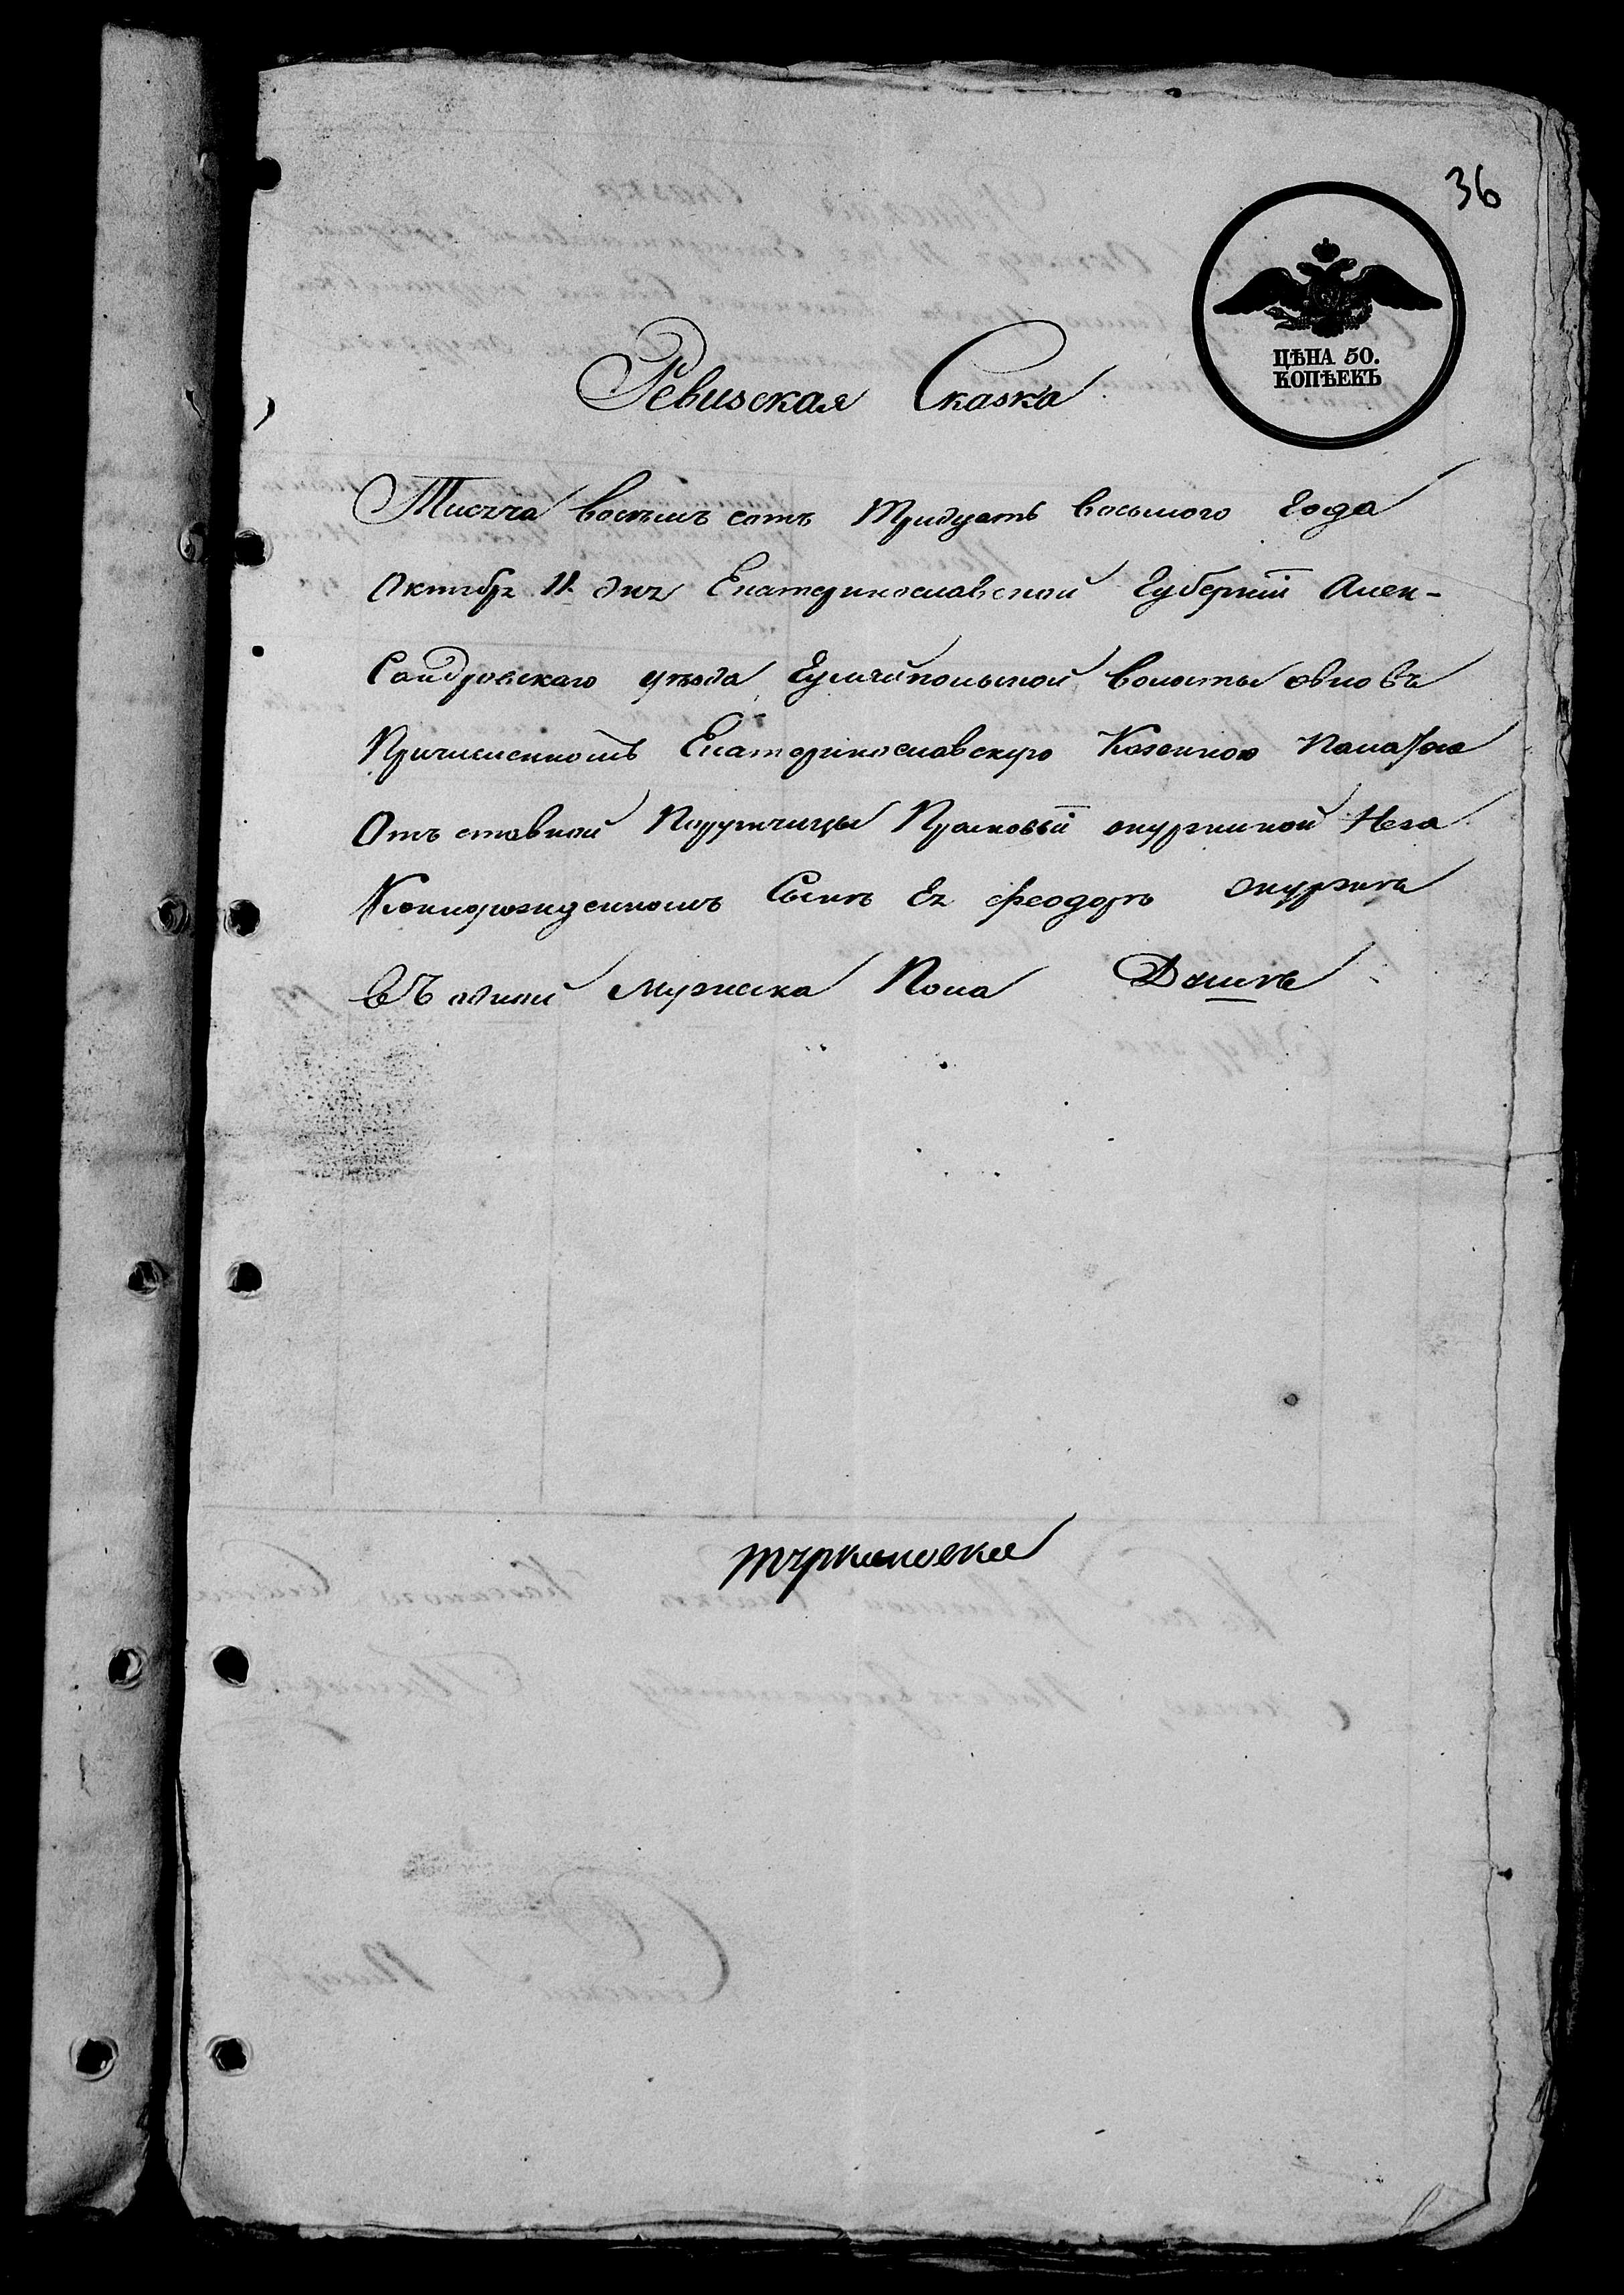 36
ЦѢНА 50.
КОПѢЕКЪ
Ревизская Сказка
Тисяча восѣмъ сотъ тридцать восьмого года
Октября 11. дня Екатеринославской Губернiи Алек-
Сандровскаго уѣзда Гуляйпольской волости вновь
Причисленномъ Екатеринославскую Казенною Палатою
Отъ ставной Поручицы Прасковьи Неза
Коннорожденномъ Сынѣ Ея Феодорѣ
въ одной мужеска Пола Душѣ